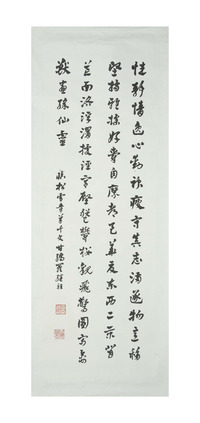 性靜情逸心動神疲守真志滿逐物意移
堅持雅操好爵自縻都邑華夏東西二京背
芒面洛浮渭據涇宮殿盤鬱樓觀飛驚圖寫禽
獸畫綵仙靈
臨松雪章草千文